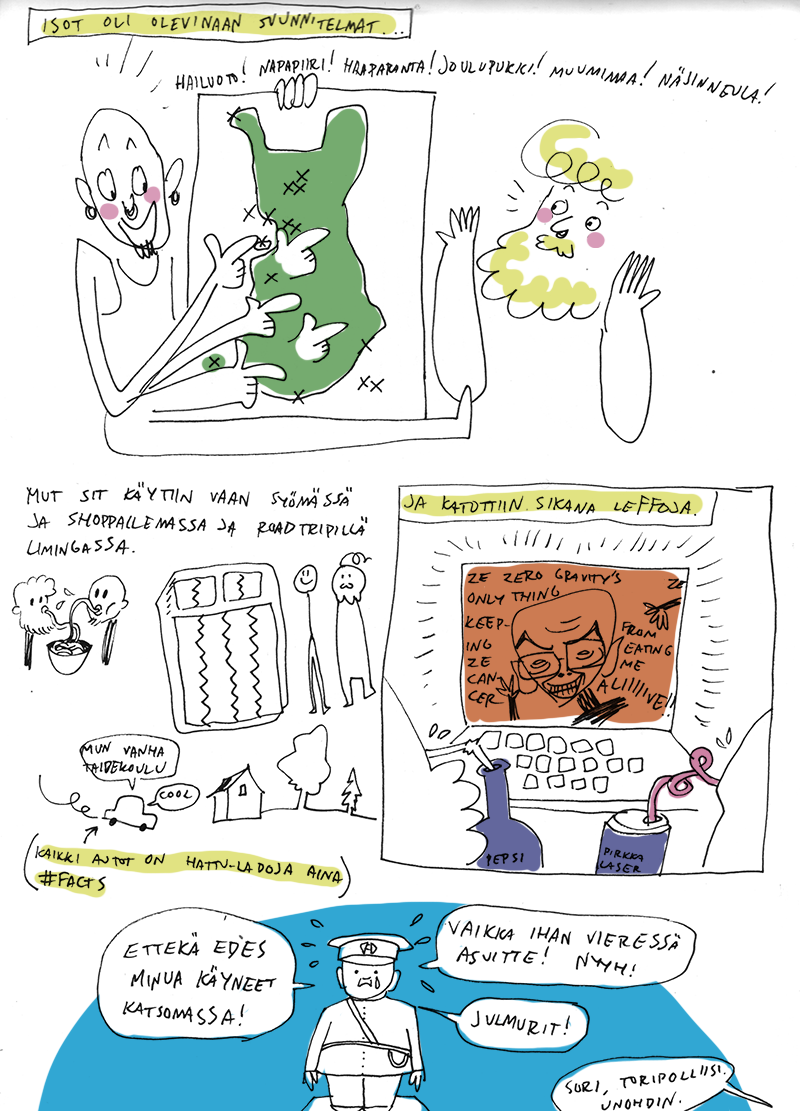 ISOT OLI OLEVINAAN SUUNNITELMAT...
HAILUOTO! NAPAPIIRI! HAAPARANTA! JOULUPUKKI! MUUMIMAA! NÄSINNEULA!
MUT SIT KÄYTIIN VAAN SYÖMÄSSÄ
JA SHOPPAILEMASSA JA ROADTRIPILLÄ
LIMINGASSA.
JA KATOTTIIN SIKANA LEFFOJA.
ZE ZERO GRAVITY'S
ONLY THING
KEEP-
ING
ZE
CAN
CER
ZE
FROM
EATING
ME
ALIIIIIVE!!
PEPSI
PIRKKA
LASER
MUN VANHA
TAIDEKOULU
COOL
(KAIKKI AUTOT ON HATTU-LADOJA AINA
#FACTS)
ETTEKÄ EDES
MINUA KÄYNEET
KATSOMASSA!
VAIKKA IHAN VIERESSÄ
ASUITTE! NYYH!
JULMURIT!
SORI, TORIPOLLIISI.
UNOHDIN.